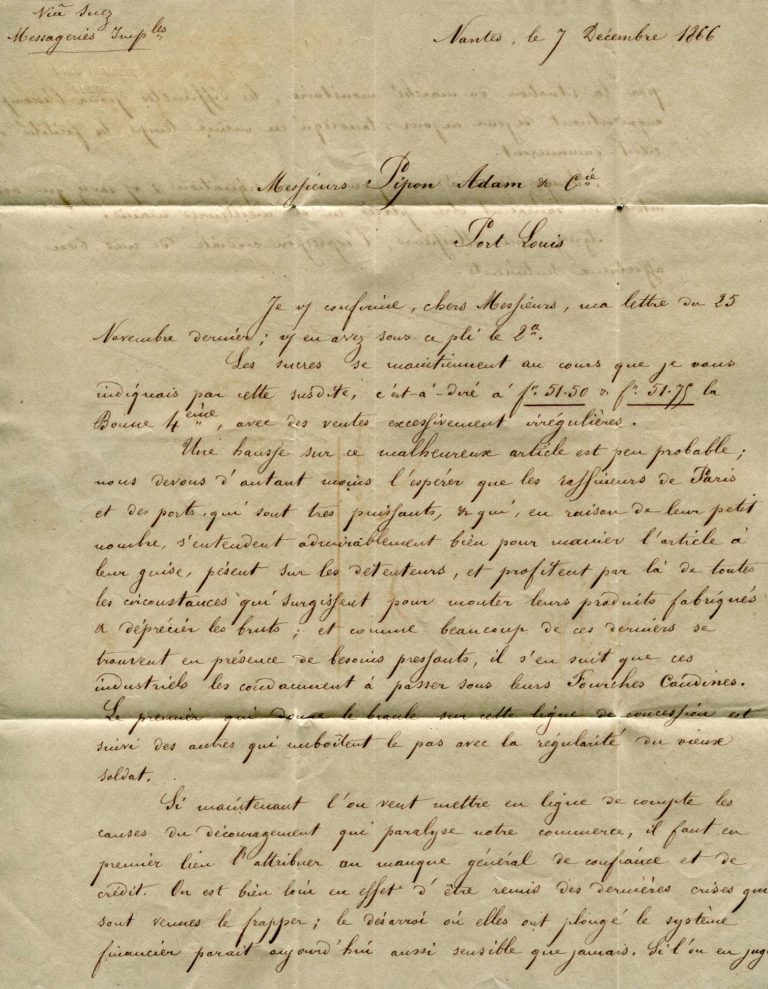 Viâ Suez
Messageries Imp^les
Nantes, le 7 Décembre 1866
Messieurs Pipon Adam & C^ie
Port Louis
Je v/ confirme, chers Messieurs, ma lettre du 25
Novembre dernier; v/ en avez sous ce pli le 2^a.
Les sucres se maintiennent au cours que je vous
indiquais par cette susdite, c'est-à-dire à f^r. 51.50 & f^r. 51.75 la
Bonne 4^ème, avec des ventes excessivement irrégulières.
Une hausse sur ce malheureux article est peu probable;
nous devons d'autant moins l'espérer que les raffineurs de Paris
et des ports, qui sont très puissants, & qui, en raison de leur petit
nombre, s'entendent admirablement bien pour manier l'article à
leur guise, pèsent sur les détenteurs, et profitent par là de toutes
les circonstances qui surgissent pour monter leurs produits fabriqués
& déprécier les bruts; et comme beaucoup de ces derniers se
trouvent en présence de besoins pressants, il s'en suit que ces
industriels les condamnent à passer sous leurs Fourches Caudines.
Le premier qui donne le branle sur cette ligne de concession est
suivi des autres qui emboîtent le pas avec la régularité du vieux
soldat.
Si maintenant l'on veut mettre en ligne de compte les
causes du découragement qui paralyse notre commerce, il faut en
premier lieu l'attribuer au manque général de confiance et de
crédit. On est bien loin en effet d'être remis des dernières crises qui
sont venues le frapper; le désarroi où elles ont plongé le système
financier parait aujourd'hui aussi sensible que jamais. Si l'on en juge